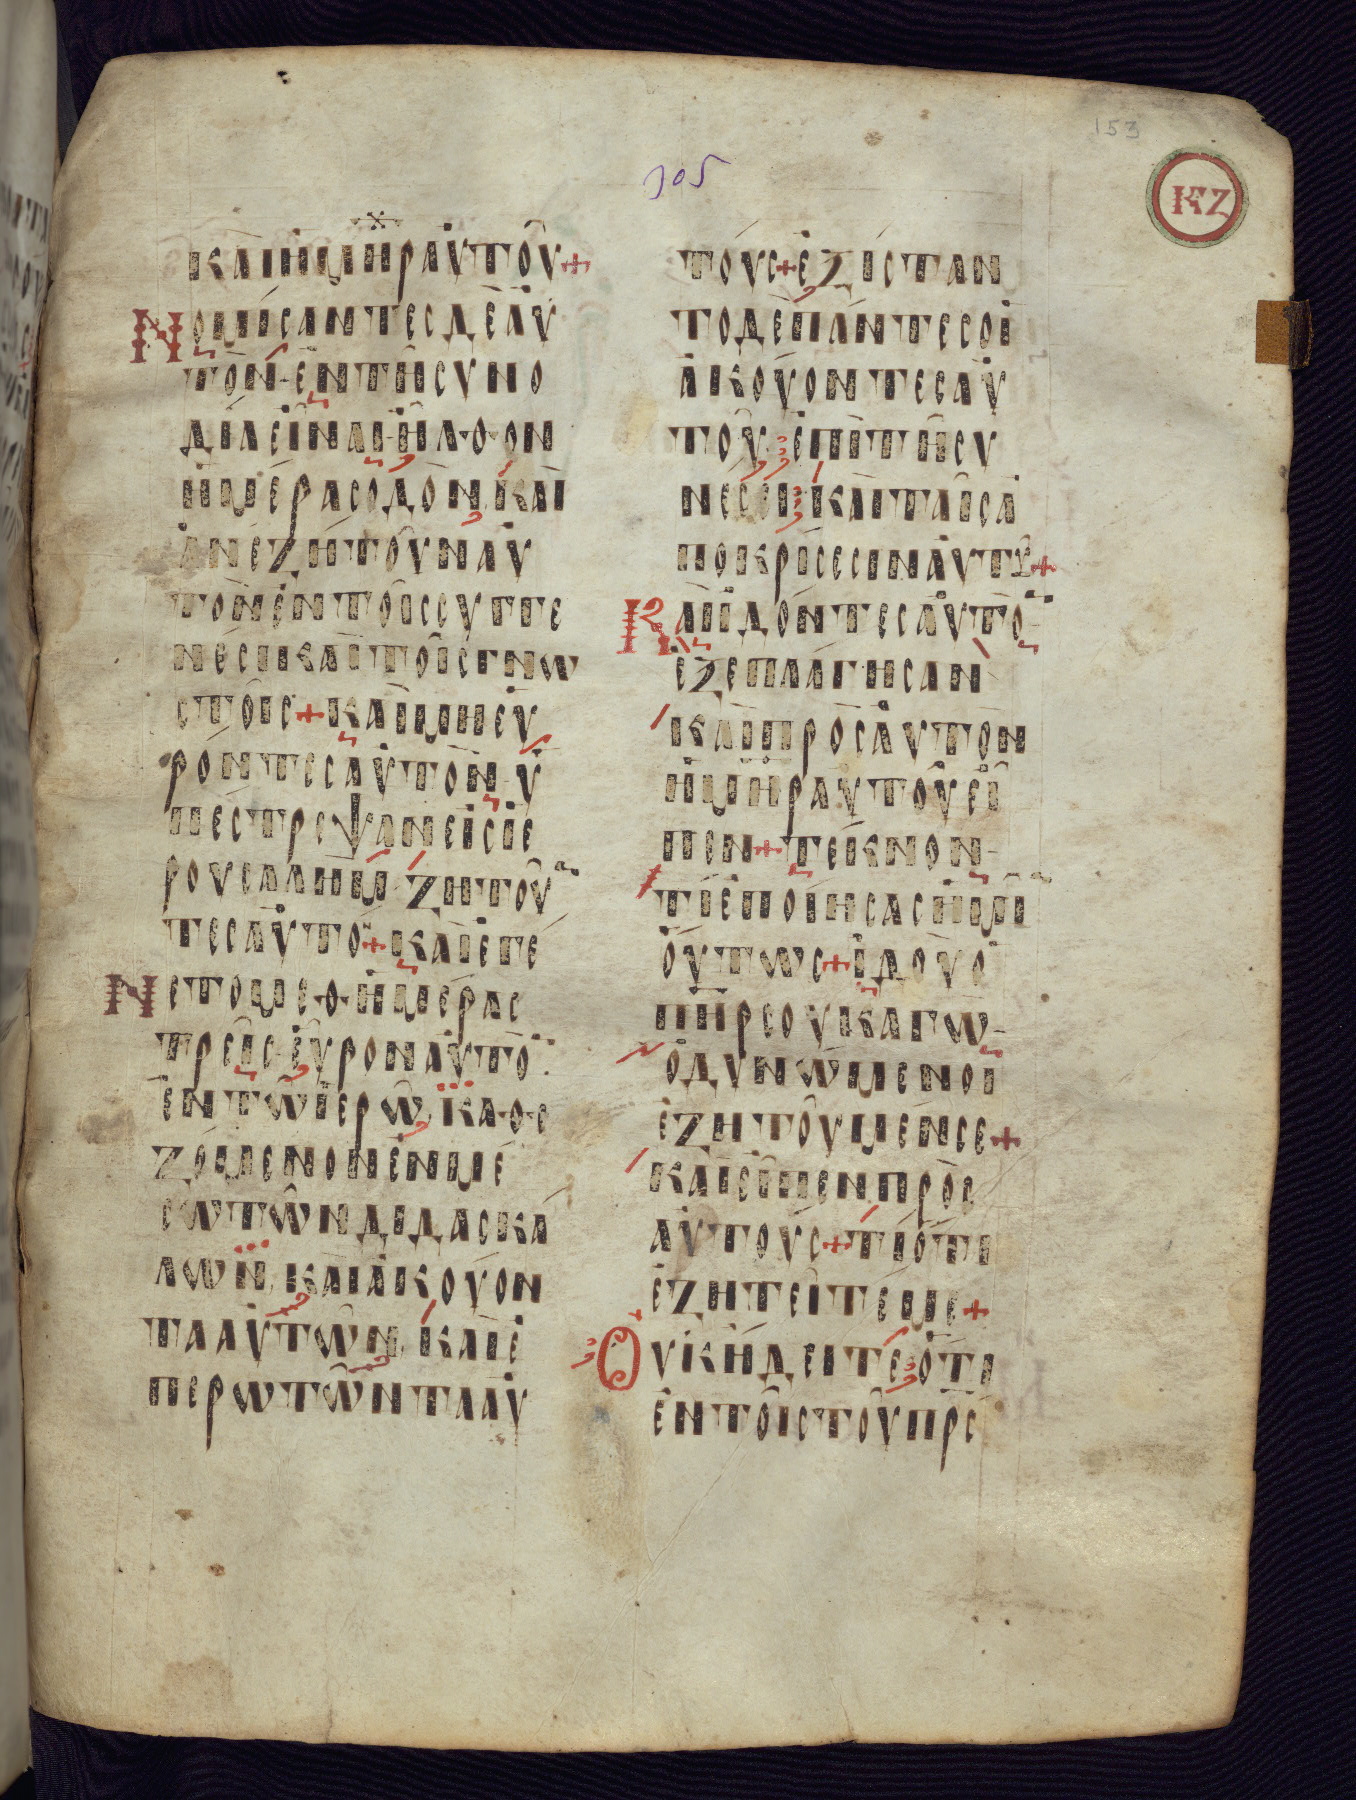 153
305
ΚΖ
ΚΑΙ Η ΜΗΡ ΑΥΤΟΥ+
ΝΟΜΙCΑΝΤΕC ΔΕ ΑΥ
ΤΟΝ ΕΝ ΤΗ CΥΝΟ
ΔΙΑ ΕΙΝΑΙ ΗΛΘΟΝ
ΗΜΕΡΑC ΟΔΟΝ ΚΑΙ
ΑΝΕΖΗΤΟΥΝ ΑΥ
ΤΟΝ ΕΝ ΤΟΙC CΥΓΓΕ
ΝΕCΙ ΚΑΙ ΤΟΙC ΓΝΩ
CΤΟΙC+ ΚΑΙ ΜΗ ΕΥ
ΡΟΝΤΕC ΑΥΤΟΝ Υ
ΠΕCΤΡΕΨΑΝ ΕΙC ΙΕ
ΡΟΥCΑΛΗΜ ΖΗΤΟΥ
ΤΕC ΑΥΤΟ+ ΚΑΙ ΕΓΕ
ΝΕΤΟ ΜΕΘ ΗΜΕΡΑC
ΤΡΕΙC ΕΥΡΟΝ ΑΥΤΟ
ΕΝ ΤΩ ΙΕΡΩ ΚΑΘΕ
ΖΟΜΕΝΟΝ ΕΝ ΜΕ
CΩ ΤΩΝ ΔΙΔΑCΚΑ
ΛΩΝ, ΚΑΙ ΑΚΟΥΟΝ
ΤΑ ΑΥΤΩΝ, ΚΑΙ Ε
ΠΕΡΩΤΩΝΤΑ ΑΥ
ΤΟΥC+ ΕΞΙCΤΑΝ
ΤΟ ΔΕ ΠΑΝΤΕC ΟΙ
ΑΚΟΥΟΝΤΕC ΑΥ
ΤΟΥ ΕΠΙ ΤΗ CΥ
ΝΕCΕΙ ΚΑΙ ΤΑΙC Α
ΠΟΚΡΙCΕCΙΝ ΑΥΤΥ+
ΚΑΙ ΙΔΟΝΤΕC ΑΥΤΟ
ΕΞΕΠΛΑΓΗCΑΝ
ΚΑΙ ΠΡΟC ΑΥΤΟΝ
Η ΜΗΡ ΑΥΤΟΥ ΕΙ
ΠΕΝ+ ΤΕΚΝΟΝ
ΤΙ ΕΠΟΙΗCΑC ΗΜΙ
ΟΥΤΩC+ ΙΔΟΥ Ο
ΠΗΡ CΟΥ ΚΑΓΩ
ΟΔΥΝΩΜΕΝΟΙ
ΕΖΗΤΟΥΜΕΝ CΕ+
ΚΑΙ ΕΙΠΕΝ ΠΡΟC
ΑΥΤΟΥC+ ΤΙ ΟΤΙ
ΕΖΗΤΕΙΤΕ ΜΕ+
ΟΥΚ ΗΔΕΙΤΕ ΟΤΙ
ΕΝ ΤΟΙC ΤΟΥ ΠΡC